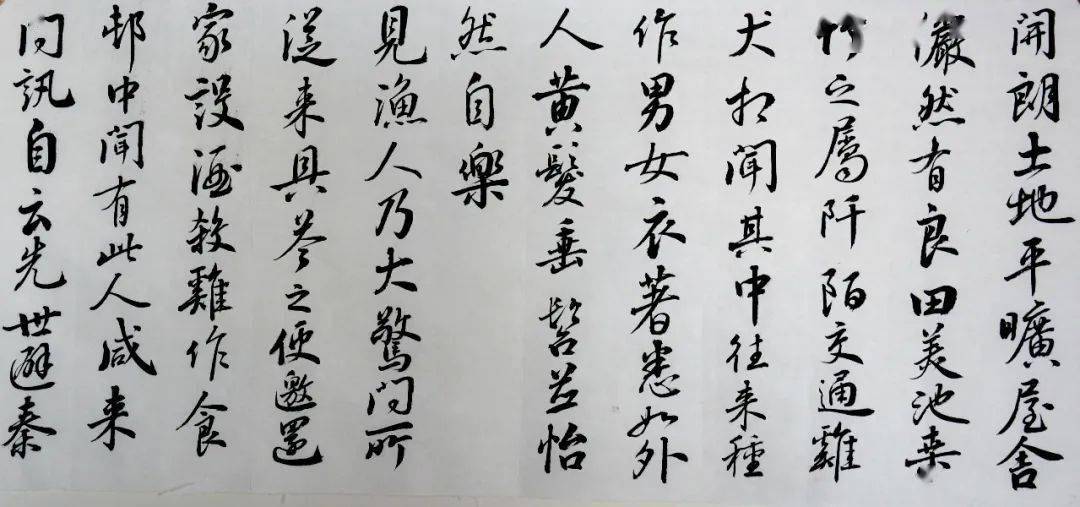 開朗土地平曠屋舍
儼然有良田美池桑
竹之屬阡陌交通雞
犬相聞其中往来種
作男女衣著悉如外
人黄髮垂髫並怡
然自樂
見漁人乃大驚問所
從来具答之便邀還
家設酒殺雞作食
邨中聞有此人咸来
問訊自云先世避秦